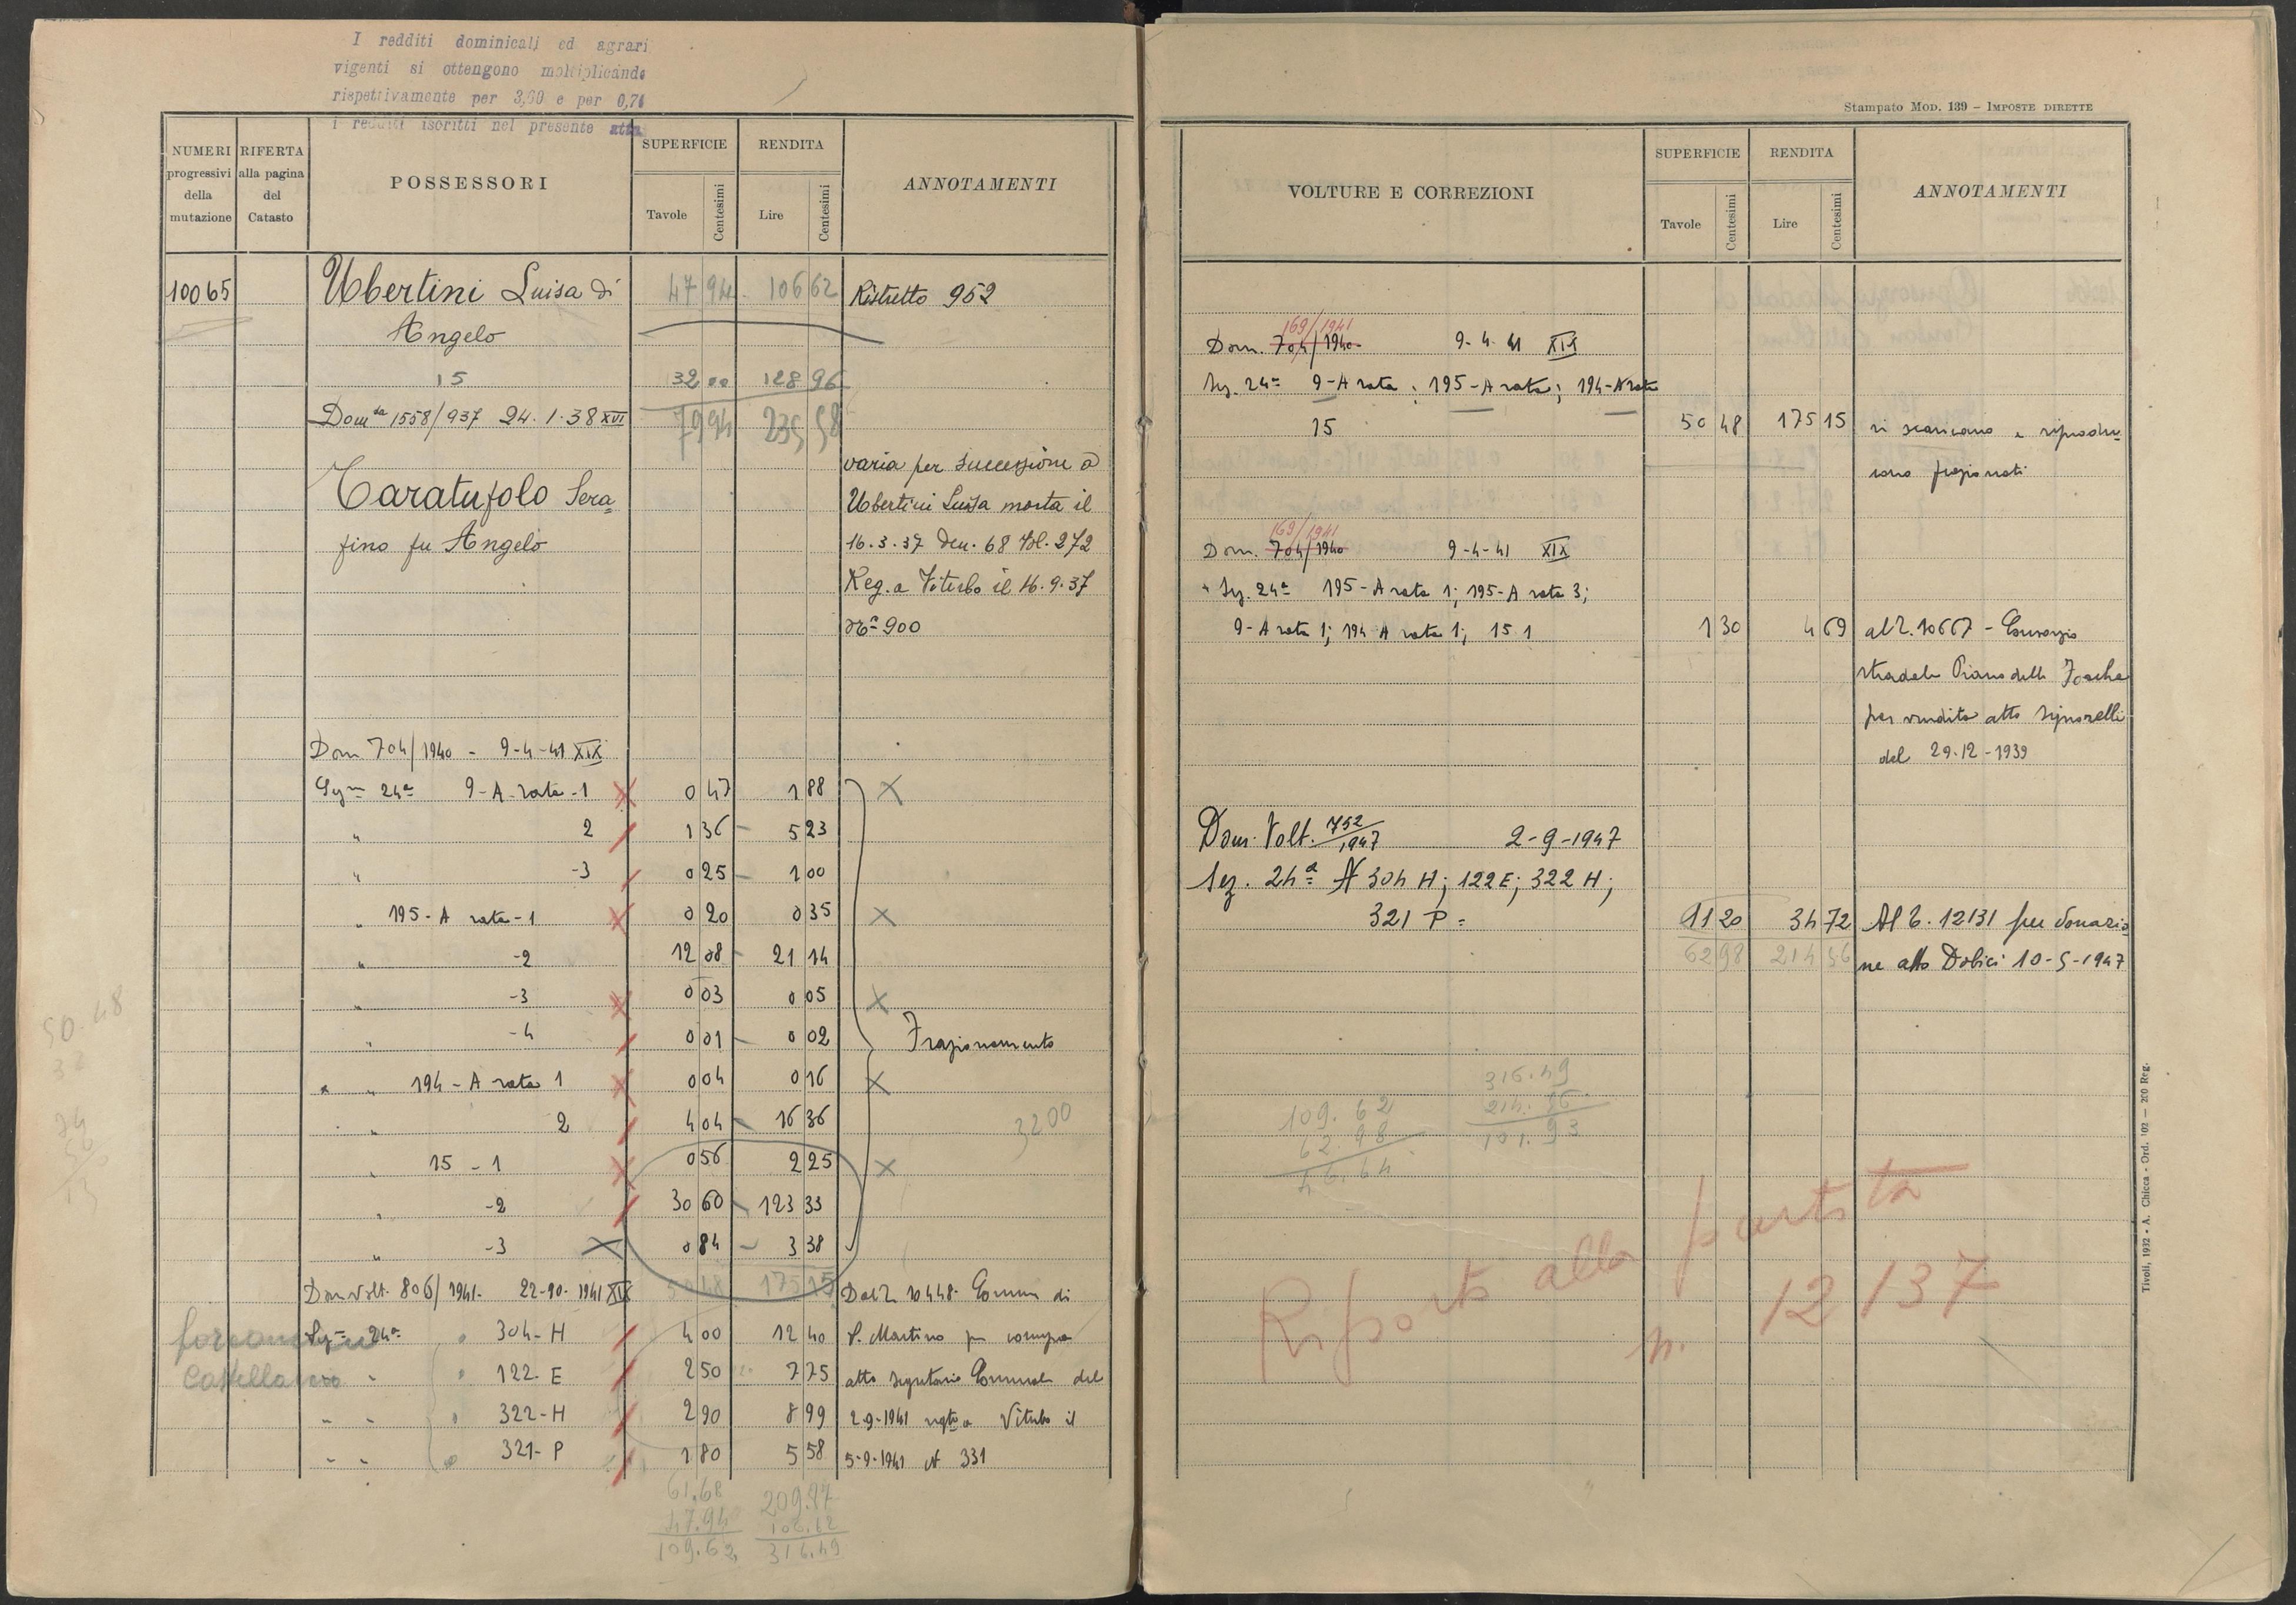 I redditi dominicali ed agrari
vigenti si ottengono moltiplicando
rispettivamente per 3,60 e per 0,71
i redditi iscritti nel presente atto
NUMERI progressivi della mutazione
RIFERTA alla pagina del Catasto
POSSESSORI
SUPERFICIE
Tavole Centesimi
RENDITA
Lire Centesimi
ANNOTAMENTI
10065 Ubertini Luisa di 47 94 106 62 Ristretto 952
Angelo
15 32 00 128 96
Domda 1558/937 24.1.38 XVI 79 94 235 58
varia per successione a
Taratufolo Sera= Ubertini Luisa morta il
fino fu Angelo 16.3.37 den. 68 Vol. 272
Reg. a Viterbo il 16.9.37
No 900
Dom 704/1940 - 9-4-41 XIX
Sez 24a 9-A rata -1 0 47 1 88
" 2 1 36 5 23
" -3 0 25 1 00
" 195-A rata -1 0 20 0 35
" -2 12 08 21 14
" -3 0 03 0 05
" -4 0 01 0 02 Frazionamento
" " 194-A rata 1 0 04 0 16
" " 2 4 04 16 36 3200
" 15 - 1 0 56 2 25
" -2 30 60 123 33
" -3 0 84 3 38
50 48 175 15
Dom Volt. 806/1941- 22-10-1941 XIX Dal 2 10448- Comun di
Sez 24a " 304-H 4 00 12 40 S. Martino per compra
Castellaccio " 122-E 2 50 7 75 atto Segretario Comunale del
" " 322-H 2 90 8 99 2-9-1941 regto a Viterbo il
" " 321-P 1 80 5 58 5-9-1941 N 331
61.68 209.87
47.94 106.62
109.62 316.49
50.48
32
Stampato MOD. 139 – IMPOSTE DIRETTE
VOLTURE E CORREZIONI
SUPERFICIE
Tavole Centesimi
RENDITA
Lire Centesimi
ANNOTAMENTI
169/1941
Dom. 704/1940 9-4-41 XIX
Sez. 24a 9-A rata; 195-A rata; 194-A rata
15 50 48 175 15 si scaricano e riprodu=
cono frazionati
169/1941
Dom. 704/1940 9-4-41 XIX
" Sez. 24a 195-A rata 1; 195-A rata 3;
9-A rata 1; 194 A rata 1; 15 1 1 30 4 69 al 2. 10667 - Consorzio
stradale Piano delle Forche
per vendita atto Signorelli
del 29-12-1939
Dom. Volt. 752/1947 2-9-1947
Sez. 24a N 304 H; 122 E; 322 H;
321 P = 11 20 34 72 Al 2. 12131 per donazio
62 98 214 56 ne atto Dobici 10-5-1947
109.62 316.49
62.98 214.56
46.64 101.93
Riporto alla partita
n. 12137
Tivoli, 1932 - A. Chicca - Ord. 102 — 200 Reg.